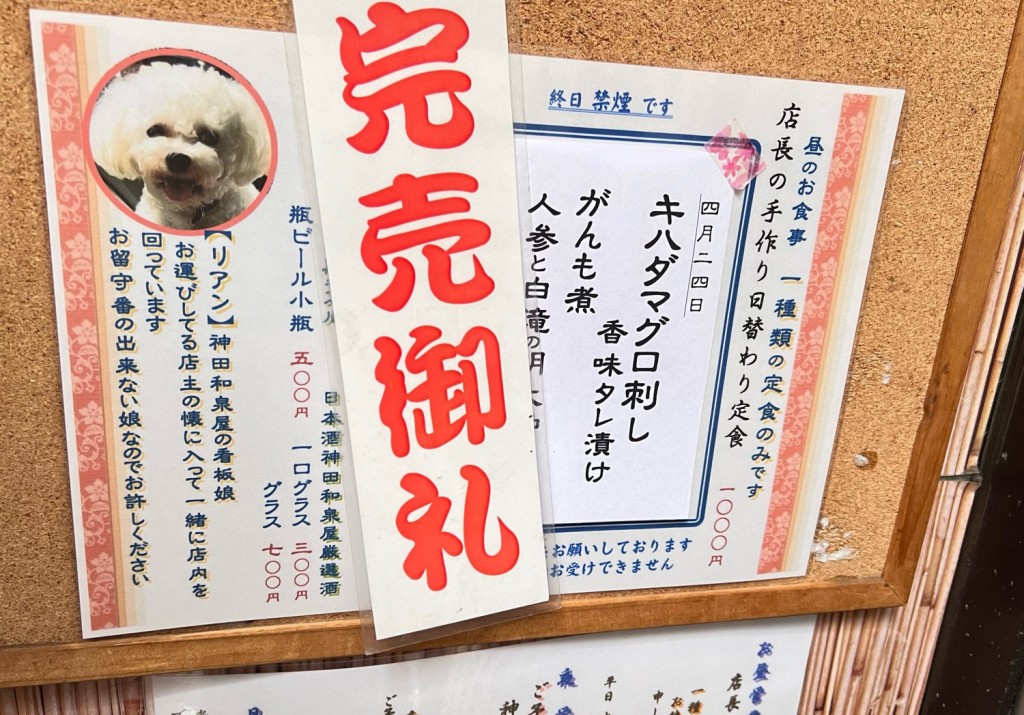 終日 禁煙 です
昼のお食事 一種類の定食のみです
店長の手作り日替わり定食
一〇〇〇円
四月二四日
キハダマグロ刺し
香味タレ漬け
がんも煮
人参と白滝の明太
お願いしております
お受けできません
完売御礼
日本酒神田和泉屋厳選酒
一口グラス 三〇〇円
グラス 七〇〇円
瓶ビール小瓶 五〇〇円
【リアン】神田和泉屋の看板娘
お運びしてる店主の懐に入って一緒に店内を
回っています
お留守番の出来ない娘なのでお許しください
お昼
店長
一種
平日